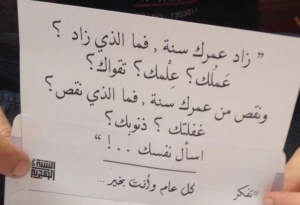 7203011
" زاد عمرك سنة , فما الذي زاد ؟
عَملك؟ عِلمك؟ تقواك؟
ونقص من عمرك سنة , فما الذي نقص؟
غفلتك ؟ ذنوبك؟
اسأل نفسك ..! "
كل عام وأنت بخير ...
#تفكر